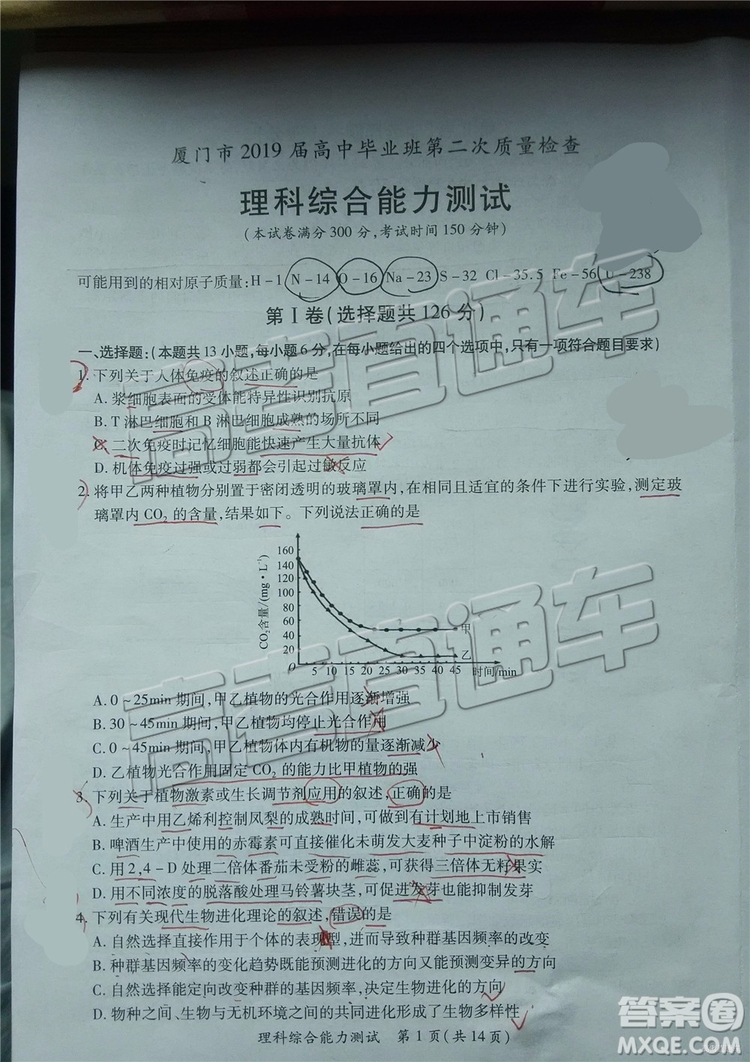 厦门市 2019 届高中毕业班第二次质量检查
理科综合能力测试
(本试卷满分 300 分,考试时间 150 分钟)
可能用到的相对原子质量:H-1 N-14 O-16 Na-23 S-32 Cl-35.5 Fe-56 U-238
第 I 卷(选择题共 126 分)
一、选择题:(本题共 13 小题,每小题 6 分,在每小题给出的四个选项中,只有一项符合题目要求)
1. 下列关于人体免疫的叙述正确的是
A. 浆细胞表面的受体能特异性识别抗原
B. T 淋巴细胞和 B 淋巴细胞成熟的场所不同
C. 二次免疫时记忆细胞能快速产生大量抗体
D. 机体免疫过强或过弱都会引起过敏反应
2. 将甲乙两种植物分别置于密闭透明的玻璃罩内,在相同且适宜的条件下进行实验,测定玻
璃罩内 CO2 的含量,结果如下。下列说法正确的是
CO2含量/(mg·L-1)
160
140
120
100
80
60
40
20
0
甲
乙
5 10 15 20 25 30 35 40 45 时间/min
A. 0~25min 期间,甲乙植物的光合作用逐渐增强
B. 30~45min 期间,甲乙植物均停止光合作用
C. 0~45min 期间,甲乙植物体内有机物的量逐渐减少
D. 乙植物光合作用固定 CO2 的能力比甲植物的强
3. 下列关于植物激素或生长调节剂应用的叙述,正确的是
A. 生产中用乙烯利控制凤梨的成熟时间,可做到有计划地上市销售
B. 啤酒生产中使用的赤霉素可直接催化未萌发大麦种子中淀粉的水解
C. 用 2,4-D 处理二倍体番茄未受粉的雌蕊,可获得三倍体无籽果实
D. 用不同浓度的脱落酸处理马铃薯块茎,可促进发芽也能抑制发芽
4. 下列有关现代生物进化理论的叙述,错误的是
A. 自然选择直接作用于个体的表现型,进而导致种群基因频率的改变
B. 种群基因频率的变化趋势既能影响进化的方向又能影响变异的方向
C. 自然选择能定向改变种群的基因频率,决定生物进化的方向
D. 物种之间、生物与无机环境之间的共同进化形成了生物多样性
理科综合能力测试 第 1 页(共 14 页)
高考直通车
高考直通车
答案卷
MXQE.COM